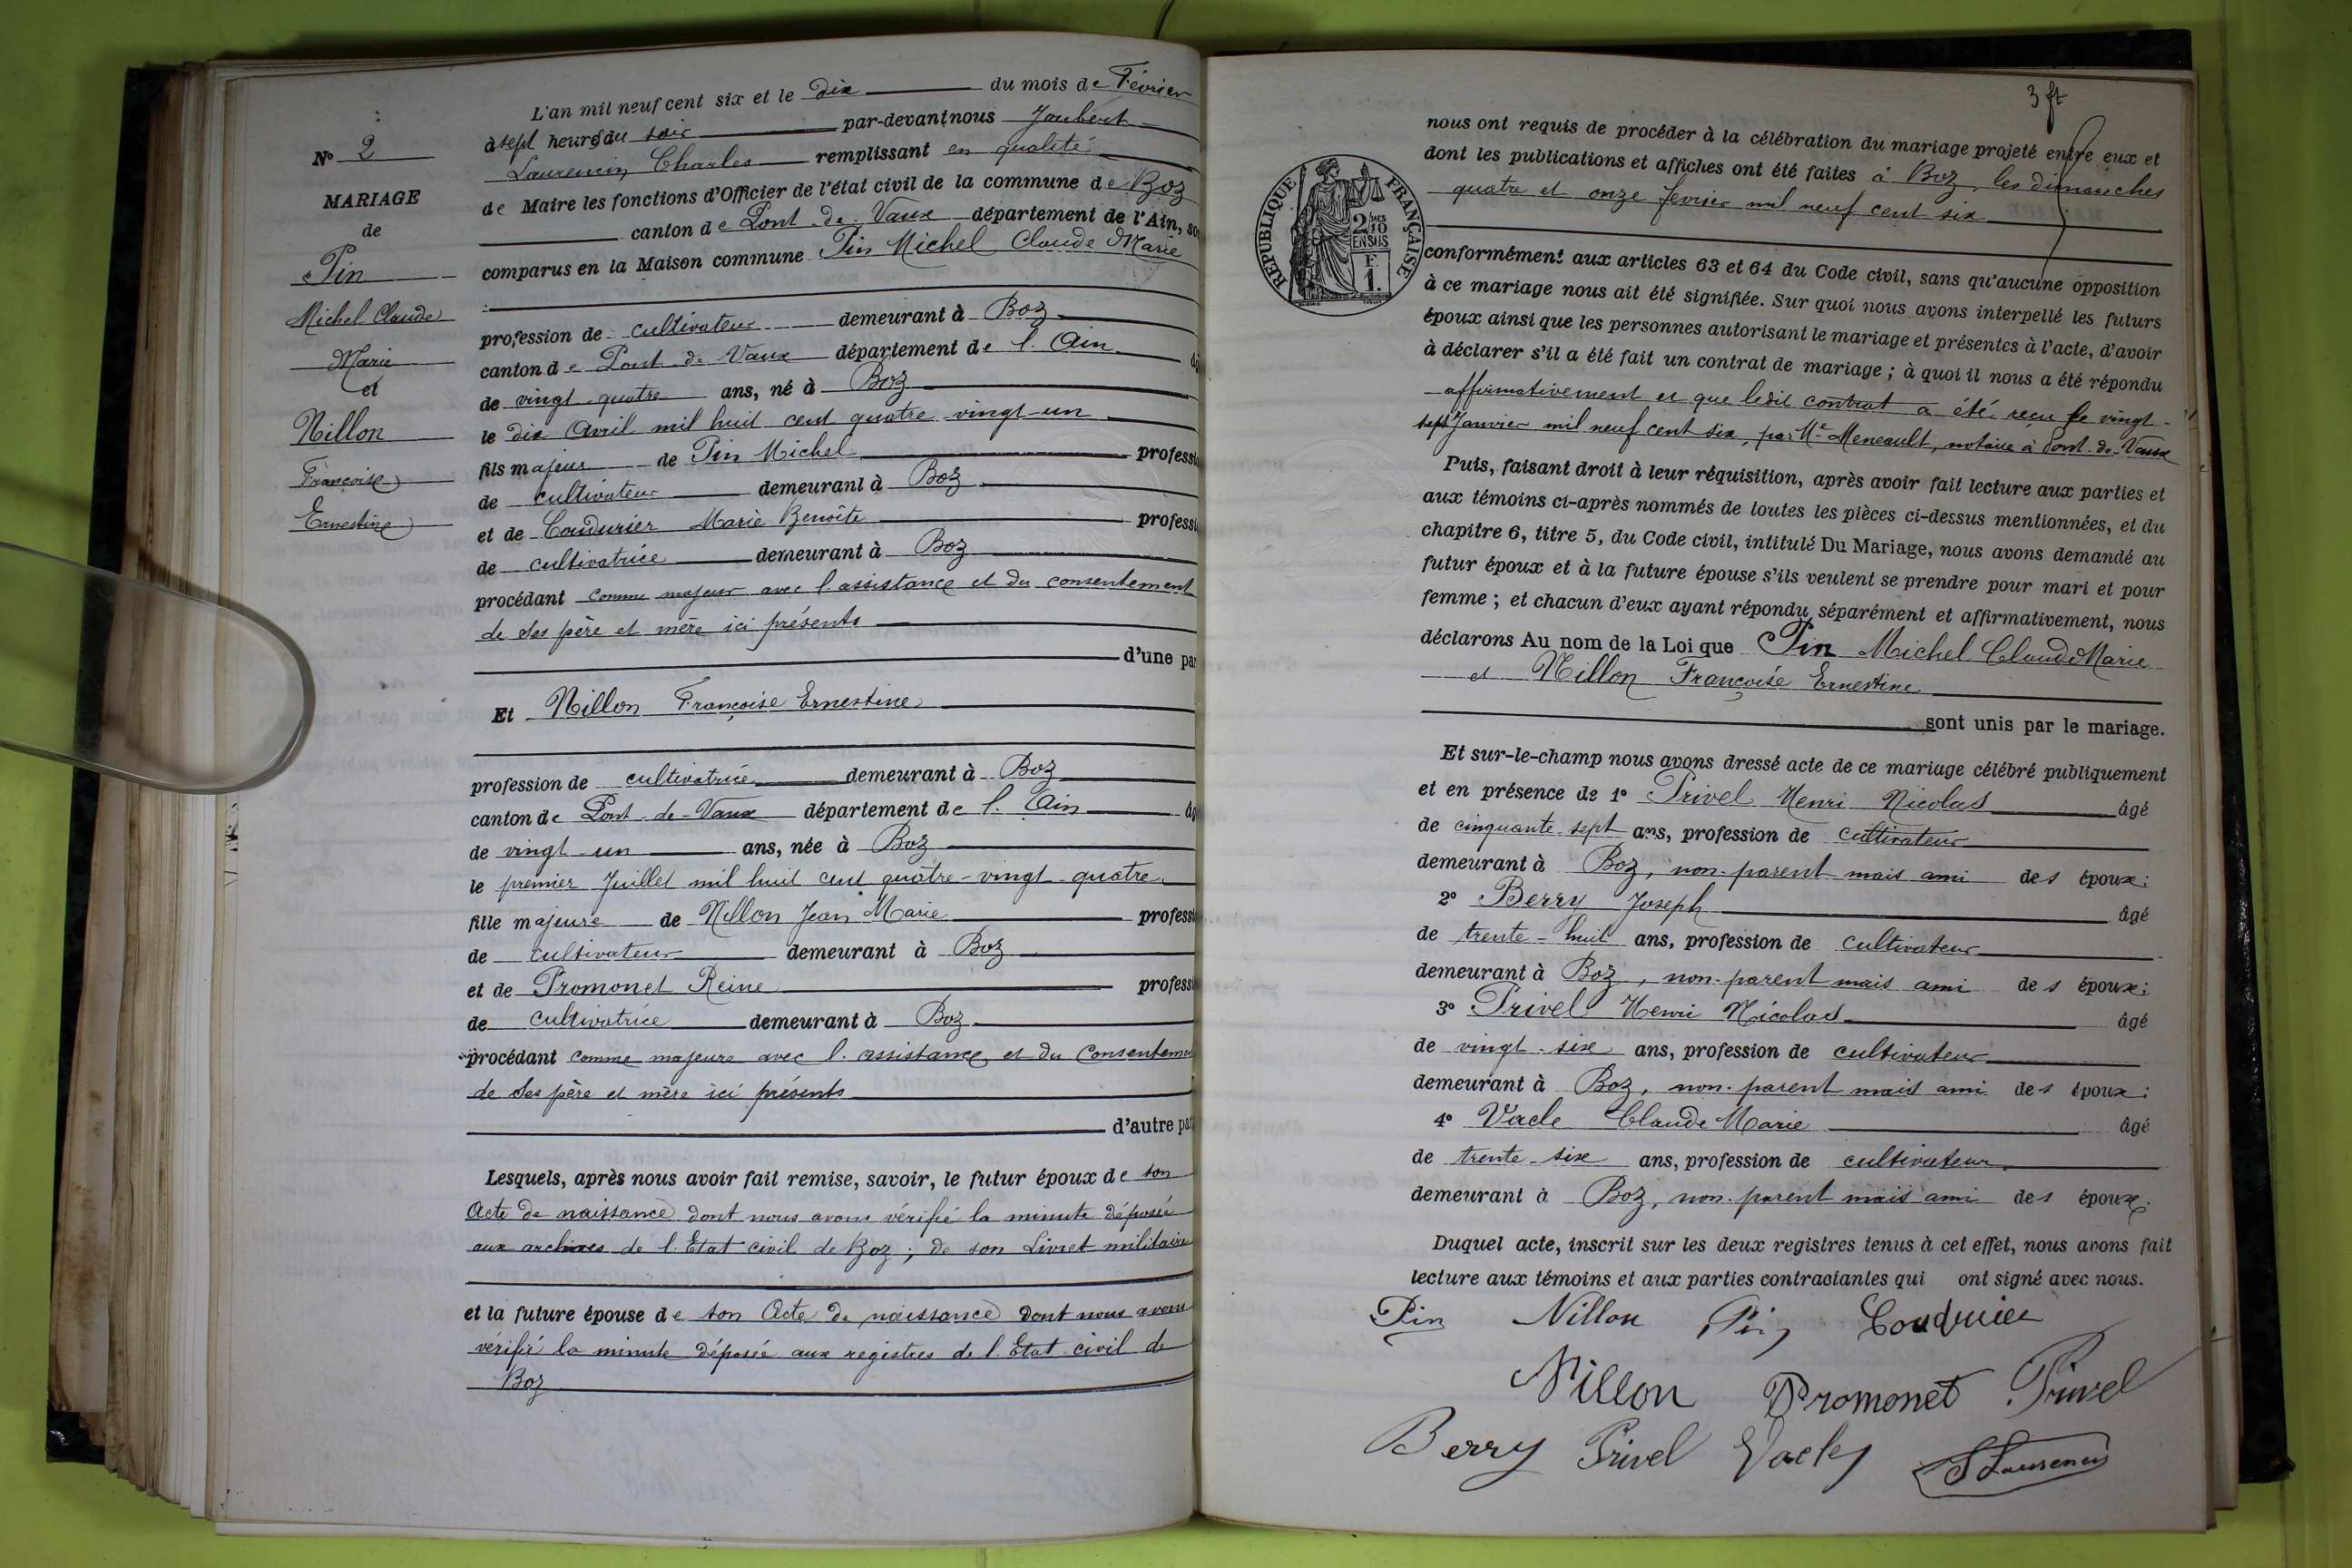 L'an mil neuf cent six et le dix du mois de Février
à sept heures du soir par-devant nous Joubert
Laurencin Charles remplissant en qualité
de Maire les fonctions d'Officier de l'état civil de la commune de Boz
canton de Pont-de-Vaux département de l'Ain, so
comparus en la Maison commune Pin Michel Claude Marie
profession de cultivateur demeurant à Boz
canton de Pont-de-Vaux département de l'Ain
de vingt-quatre ans, né à Boz
le dix Avril mil huit cent quatre-vingt-un
fils majeur de Pin Michel professi
de cultivateur demeurant à Boz
et de Coudurier Marie Benoîte professi
de cultivatrice demeurant à Boz
procédant comme majeur avec l'assistance et du consentement
de ses père et mère ici présents
d'une par
Et Nillon Françoise Ernestine
profession de cultivatrice demeurant à Boz
canton de Pont-de-Vaux département de l'Ain âg
de vingt-un ans, née à Boz
le premier Juillet mil huit cent quatre-vingt-quatre
fille majeure de Nillon Jean Marie professi
de cultivateur demeurant à Boz
et de Promonet Reine professi
de cultivatrice demeurant à Boz
procédant comme majeure avec l'assistance et du consenteme
de ses père et mère ici présents
d'autre par
Lesquels, après nous avoir fait remise, savoir, le futur époux de son
Acte de naissance dont nous avons vérifié la minute déposée
aux archives de l'Etat civil de Boz ; de son Livret militaire
et la future épouse de son Acte de naissance dont nous avons
vérifié la minute déposée aux registres de l'Etat civil de
Boz
N° 2
MARIAGE
de
Pin
Michel Claude
Marie
et
Nillon
Françoise
Ernestine
3 ft
RÉPUBLIQUE FRANÇAISE
2/10
EN SUS
F.
1.
nous ont requis de procéder à la célébration du mariage projeté entre eux et
dont les publications et affiches ont été faites à Boz, les dimanches
quatre et onze février mil neuf cent six
conformément aux articles 63 et 64 du Code civil, sans qu'aucune opposition
à ce mariage nous ait été signifiée. Sur quoi nous avons interpellé les futurs
époux ainsi que les personnes autorisant le mariage et présentes à l'acte, d'avoir
à déclarer s'il a été fait un contrat de mariage ; à quoi il nous a été répondu
affirmativement et que ledit contrat a été reçu le vingt-
sept Janvier mil neuf cent six, par Me Meneault, notaire à Pont-de-Vaux
Puis, faisant droit à leur réquisition, après avoir fait lecture aux parties et
aux témoins ci-après nommés de toutes les pièces ci-dessus mentionnées, et du
chapitre 6, titre 5, du Code civil, intitulé Du Mariage, nous avons demandé au
futur époux et à la future épouse s'ils veulent se prendre pour mari et pour
femme ; et chacun d'eux ayant répondu séparément et affirmativement, nous
déclarons Au nom de la Loi que Pin Michel Claude Marie
et Nillon Françoise Ernestine
sont unis par le mariage.
Et sur-le-champ nous avons dressé acte de ce mariage célébré publiquement
et en présence de 1° Privel Henri Nicolas âgé
de cinquante-sept ans, profession de cultivateur
demeurant à Boz, non-parent mais ami des époux ;
2° Berry Joseph âgé
de trente-huit ans, profession de cultivateur
demeurant à Boz, non-parent mais ami des époux ;
3° Privel Henri Nicolas âgé
de vingt-six ans, profession de cultivateur
demeurant à Boz, non-parent mais ami des époux ;
4° Vacle Claude Marie âgé
de trente-six ans, profession de cultivateur
demeurant à Boz, non-parent mais ami des époux.
Duquel acte, inscrit sur les deux registres tenus à cet effet, nous avons fait
lecture aux témoins et aux parties contractantes qui ont signé avec nous.
Pin Nillon Pin Coudurier
Nillon Promonet Privel
Berry Privel Vacle Laurencin